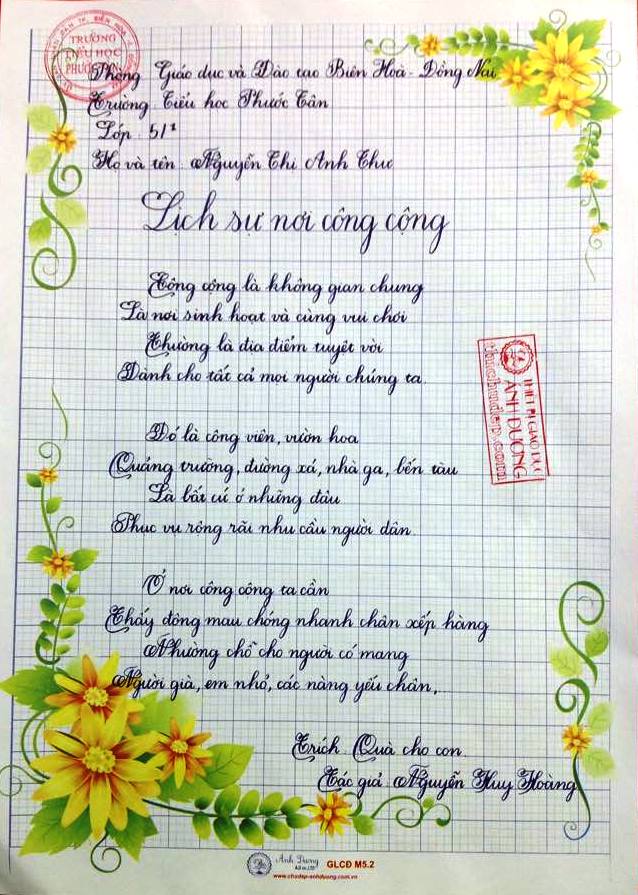 TRƯỜNG
TIỂU HỌC
PHƯỚC TÂN
Phòng Giáo dục và Đào tạo Biên Hoà - Đồng Nai
Trường Tiểu học Phước Tân
Lớp : 5/1
Họ và tên : Nguyễn Thị Anh Thư
Lịch sự nơi công cộng
Công cộng là không gian chung
Là nơi sinh hoạt và cùng vui chơi
Thường là địa điểm tuyệt vời
Dành cho tất cả mọi người chúng ta.
Đó là công viên, vườn hoa
Quảng trường, đường xá, nhà ga, bến tàu
Là bất cứ ở những đâu
Phục vụ rộng rãi nhu cầu người dân.
Ở nơi công cộng ta cần
Thấy đông mau chóng nhanh chân xếp hàng
Nhường chỗ cho người có mang
Người già, em nhỏ, các nàng yếu chân.
Trích : Quà cho con.
Tác giả : Nguyễn Huy Hoàng
THIẾT BỊ GIÁO DỤC
ÁNH DƯƠNG
chuchudep.com
Anh Duong
GLCĐ M5.2
www.chudep-anhduong.com.vn